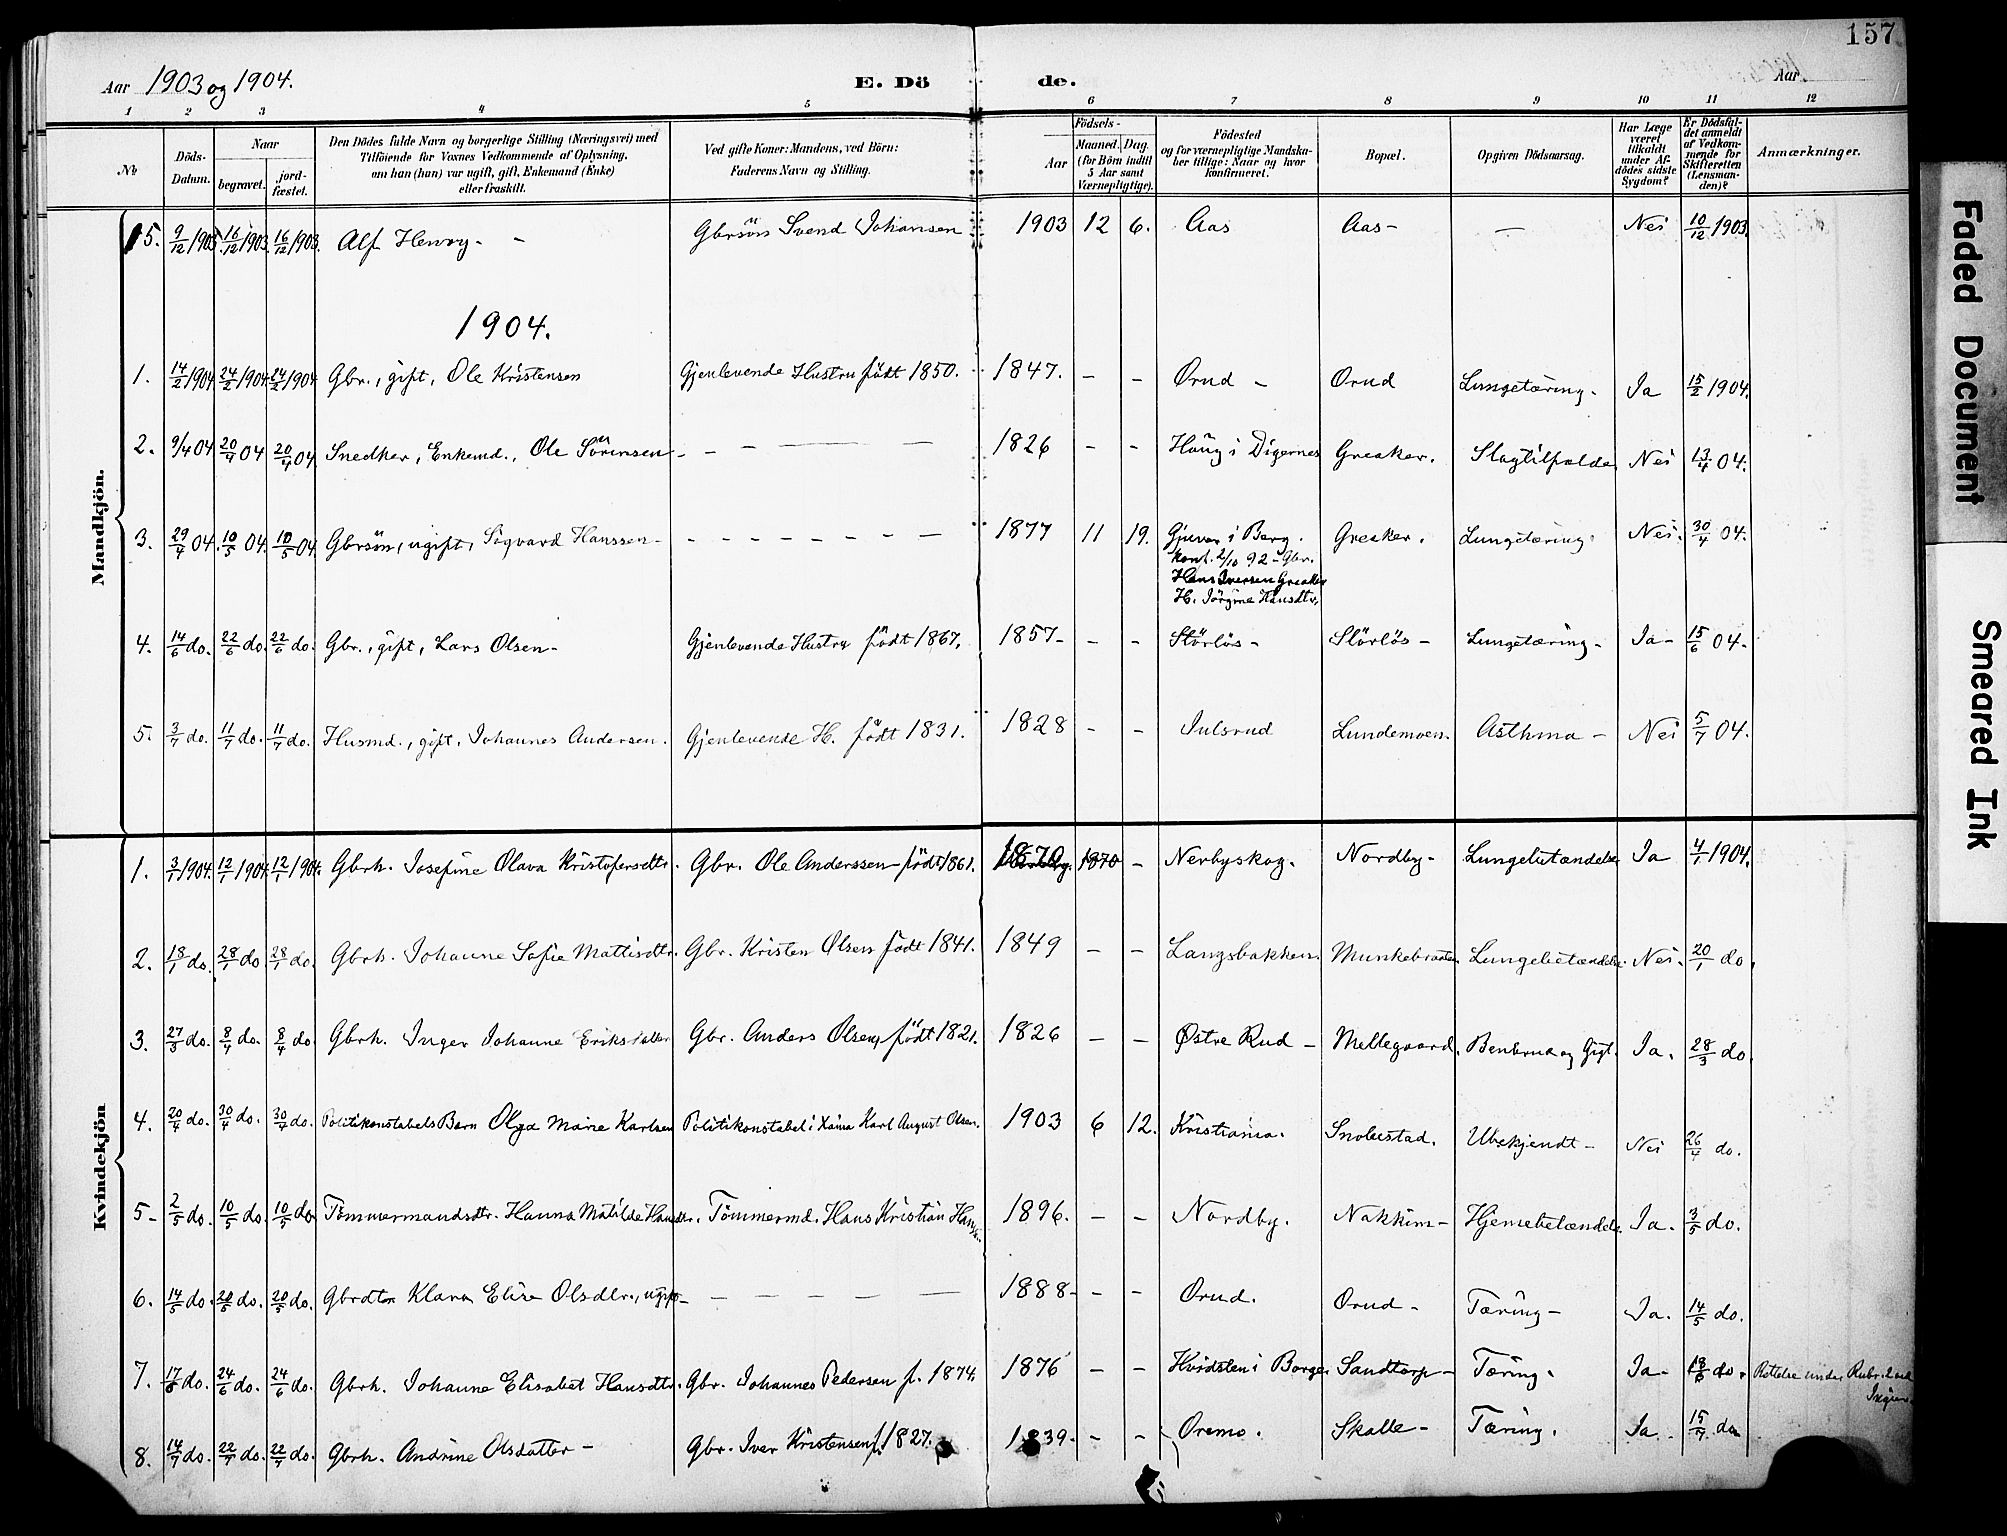 157
Aar 1903 og 1904. E. Dö de. Aar
1 2 3 4 5 6 7 8 9 10 11 12
№ Döds-Datum. Naar begravet. jord-fæstet. Den Dödes fulde Navn og borgerlige Stilling (Næringsvei) med Tilföiende for Voxnes Vedkommende af Oplysning, om han (hun) var ugift, gift, Enkemand (Enke) eller fraskilt. Ved gifte Koner: Mandens, ved Börn: Faderens Navn og Stilling. Födsels- Aar Maaned. Dag. (for Börn indtil 5 Aar samt Værnepligtige). Födested og for værnepligtige Mandskaber tillige: Naar og hvor konfirmeret. Bopæl. Opgiven Dödsaarsag. Har Læge været tilkaldt under Afdödes sidste Sygdom? Er Dödsfaldet anmeldt af Vedkommende for Skifteretten (Lensmanden)? Anmærkninger.
Mandkjön.
15. 9/12 1903. 16/12 1903. 16/12 1903. Alf Henry - - Gbrsön Svend Johansen 1903 12 6. Aas Aas - — Nei 10/12 1903.
1904.
1. 14/2 1904 24/2 1904 24/2 1904 Gbr., gift, Ole Kristensen Gjenlevende Hustru födt 1850. 1847. - - Orud - Orud Lungetæring. Ja 15/2 1904.
2. 9/4 04 20/4 04 20/4 04 Snedker, Enkemd., Ole Sörensen - - - — — 1826 - - Haug i Digernes Greaker. Slagtilfælde Nei 13/4 04.
3. 29/4 04. 10/5 04. 10/5 04. Gbrsön, ugift, Sigvard Hanssen - - - - - - - - — 1877 11 19. Gjuver i Berg. Greaker. Lungetæring. Nei. 30/4 04.
Konf. 2/10 92 - Gbr.
Hans Iversen Greaker
H. Jörgine Hansdtr.
4. 14/6 do. 22/6 do. 22/6 do. Gbr., gift, Lars Olsen - Gjenlevende Hustru födt 1867. 1857 - - - Störlös - Störlös - Lungetæring - Ja - 15/6 04.
5. 3/7 do. 11/7 do. 11/7 do. Husmd., gift, Johannes Andersen. Gjenlevende H. födt 1831. 1828 - - Julsrud Lundemoen. Asthma - Nei 5/7 04.
Kvindekjön
1. 3/1 1904. 12/1 1904. 12/1 1904. Gbrh. Josefine Olava Kristofersdtr. Gbr. Ole Anderssen födt 1861. 1870 1870 - Nerbyskog. Nordby - Lungebetændelse Ja 4/1 1904.
2. 18/1 do. 28/1 do 28/1 do. Gbrh. Johanne Sofie Mattisdtr. Gbr. Kristen Olsen födt 1841. 1849 - - Langsbakken. Munkebraaten Lungebetændelse. Nei. 20/1 do.
3. 27/3 do. 8/4 do. 8/4 do Gbrh. Inger Johanne Eriksdatter Gbr. Anders Olsen, födt 1821. 1826 - - Østre Rud - Mellegaard. Benbrud og Gigt. Ja. 28/3 do.
4. 20/4 do. 30/4 do. 30/4 do. Politikonstabels Barn Olga Marie Karlsen Politikonstabel i Xania Karl August Olsen. 1903 6 12. Kristiania. Snolestad. Ubekjendt - Nei 26/4 do.
5 - 2/5 do. 10/5 do. 10/5 do. Tömmermandsdtr. Hanna Matilde Hansdtr. Tömmermd. Hans Kristian Hans 1896. - - Nordby. Nakkim - Hjernebetændelse. Ja. 3/5 do.
6. 14/5 do. 20/5 do. 20/5 do. Gbrdtr Klara Elise Olsdtr., ugift - — — — — 1888 - - - Orud. Orud - Tæring - Ja. 14/5 do.
7. 17/6 do. 24/6 do. 24/6 do. Gbrh. Johanne Elisabet Hansdtr. Gbr. Johannes Pedersen f. 1874. 1876 - - Hvidsten i Borge Sandtorp - Tæring. Ja - 18/6 do. Rettelse under Rubr. 2 og
8. 14/7 do. 22/7 do. 22/7 do. Gbrh. Andrine Olsdatter - Gbr. Iver Kristensen f. 1827. 1839. - - Oremo. Skalle - Tæring. Ja. 15/7 do
Faded Document
Smeared Ink